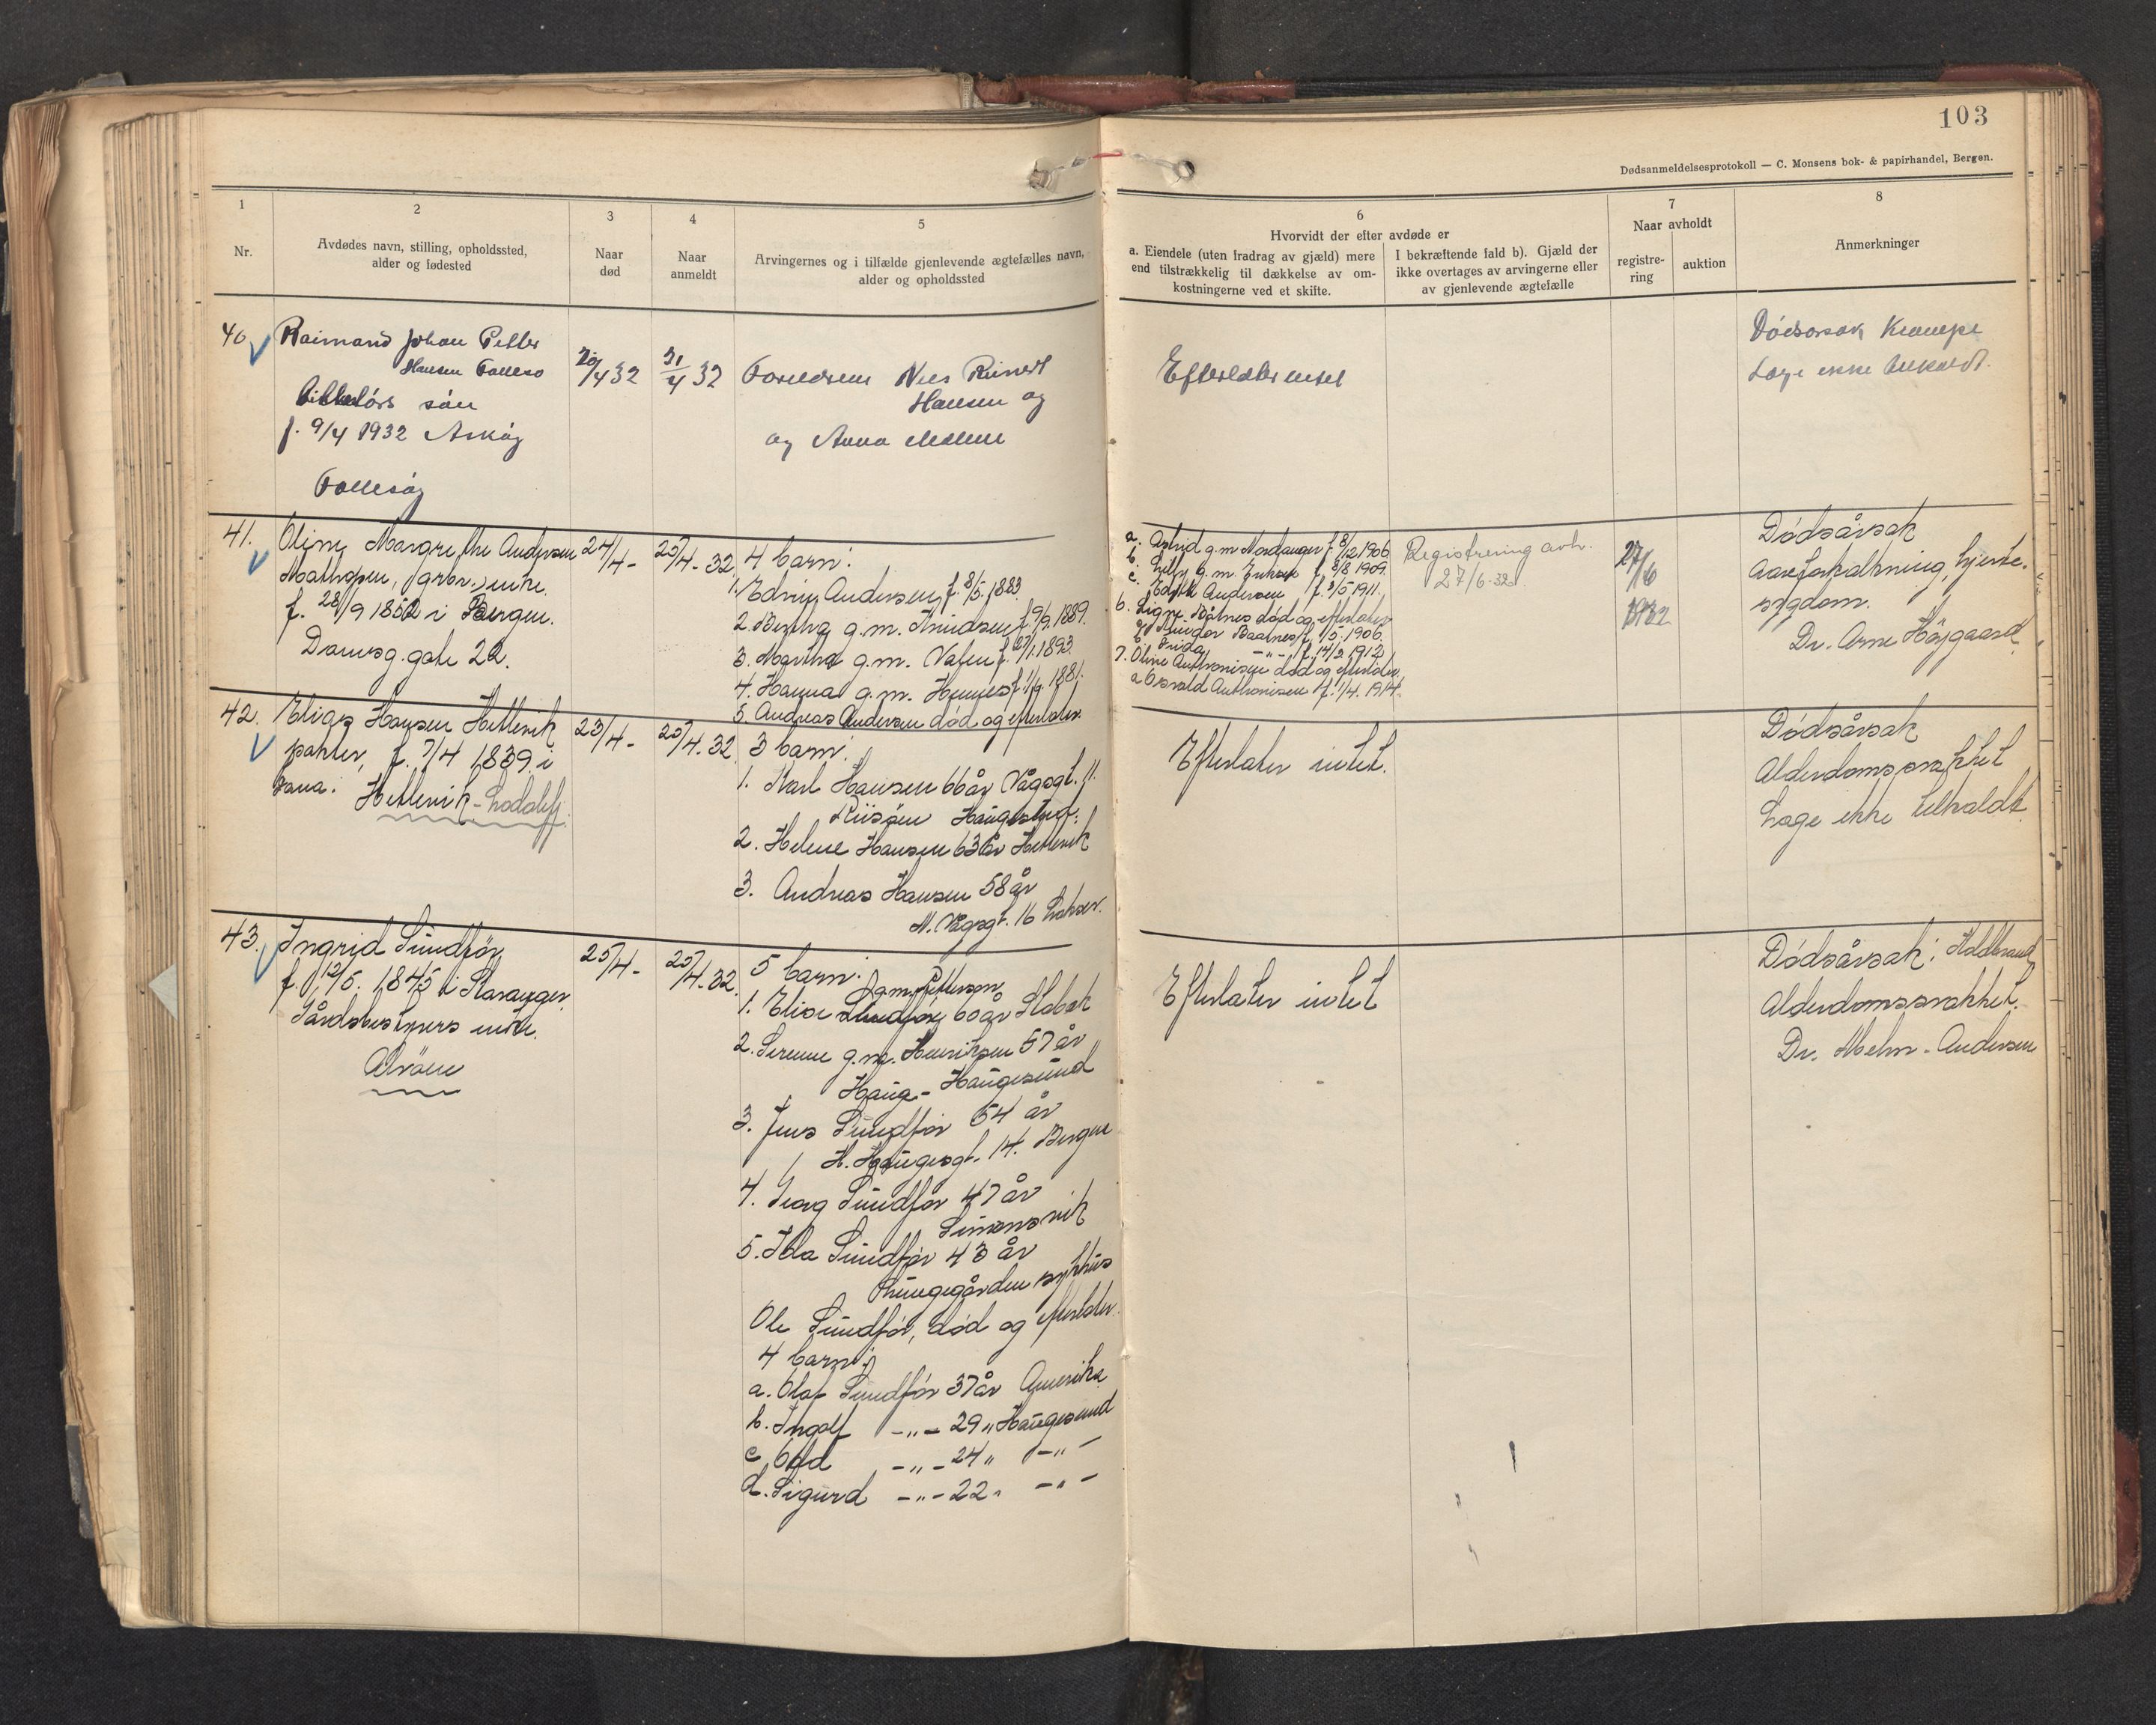 103
Dødsanmeldelsesprotokoll — C. Monsens bok- & papirhandel, Bergen.
1
Nr.
2
Avdødes navn, stilling, opholdssted,
alder og fødested
3
Naar
død
4
Naar
anmeldt
5
Arvingernes og i tilfælde gjenlevende ægtefælles navn,
alder og opholdssted
6
Hvorvidt der efter avdøde er
a. Eiendele (uten fradrag av gjæld) mere
end tilstrækkelig til dækkelse av om-
kostningerne ved et skifte.
I bekræftende fald b). Gjæld der
ikke overtages av arvingerne eller
av gjenlevende ægtefælle
7
Naar avholdt
registre-
ring
auktion
8
Anmerkninger
40
Raimand Johan Petter
Hansen
søn
f. 9/4 1932 Askøy
Follesøy
20/4 32
/4 32
Forældrene
Hansen og
og Anna
Efterlater intet
Dødsorsak Krampe
Læge ikke tilkaldt.
41.
Oline Margrethe Andersen
Mathopen, grbr. enke.
f. 28/9 1852 i Bergen.
Damsg.gate 22.
24/4 -
25/4 - 32.
4 barn:
1. Edvin Andersen f. 8/5 1883.
2. Bertha g.m. Knudsen f. 9/9 1889.
3. Martha g.m. f. 27/1 1893.
4. Hanna g.m. f. 1/9. 1881.
5. Andreas Andersen død og efterlater.
a. Astrid g.m. Nordanger f. 8/12 1906
b. g.m. f. 3/8 1909.
c. Edith Andersen f. 3/5 1911.
6. Signe Båtnes død og efterlater
Baatnes f. 1/5. 1906.
b. Frida -"- f. 14/3. 1912
7. Oline Anthonisen død og efterlater.
a Osvald Anthonisen f. 1/4. 1914.
Registrering avh.
27/6-32.
27/6
1932
Dødsårsak
Aareforkalkning, hjerte-
sygdom.
Dr. Arne Höjgaard.
42.
Elias Hansen Hetlevik
f. 7/4 1839 i
Hetlevik -
23/4 -
25/4 - 32
3 barn:
1. Karl Hansen 66 år Vågsgt. 11.
2. Helene Hansen 63 år Hetlevik
3. Andreas Hansen 58 år
N. Vågsgt. 16 Laksev.
Efterlater intet.
Dødsårsak
Alderdomssvakhet
Læge ikke tilkaldt.
43.
Ingrid Sundför
f. 12/5. 1845 i Stavanger.
Gårdsbestyrers enke.
Alvöen
25/4 -
25/4 - 32.
5 barn:
g.m. Pettersen
1. Elise Sundför 60 år
2. Serine g.m. Henriksen 57 år
Haug- Haugesund
3. Jens Sundför 54 år
H. Haugesgt. 14. Bergen
4. Georg Sundför 47 år
Simonsvik
5. Ida Sundför 43 år
sykhus
Ole Sundför, død og efterlater
4 barn:
a. Olaf Sundför 37 år Amerika
b. Ingolf -"- 29 " Haugesund
c. Odd -"- 24 " -"-
d. Sigurd -"- 22 " -"-
Efterlater intet
Dødsårsak: Koldbrand
Alderdomssvakhet.
Dr. Mehn-Andersen